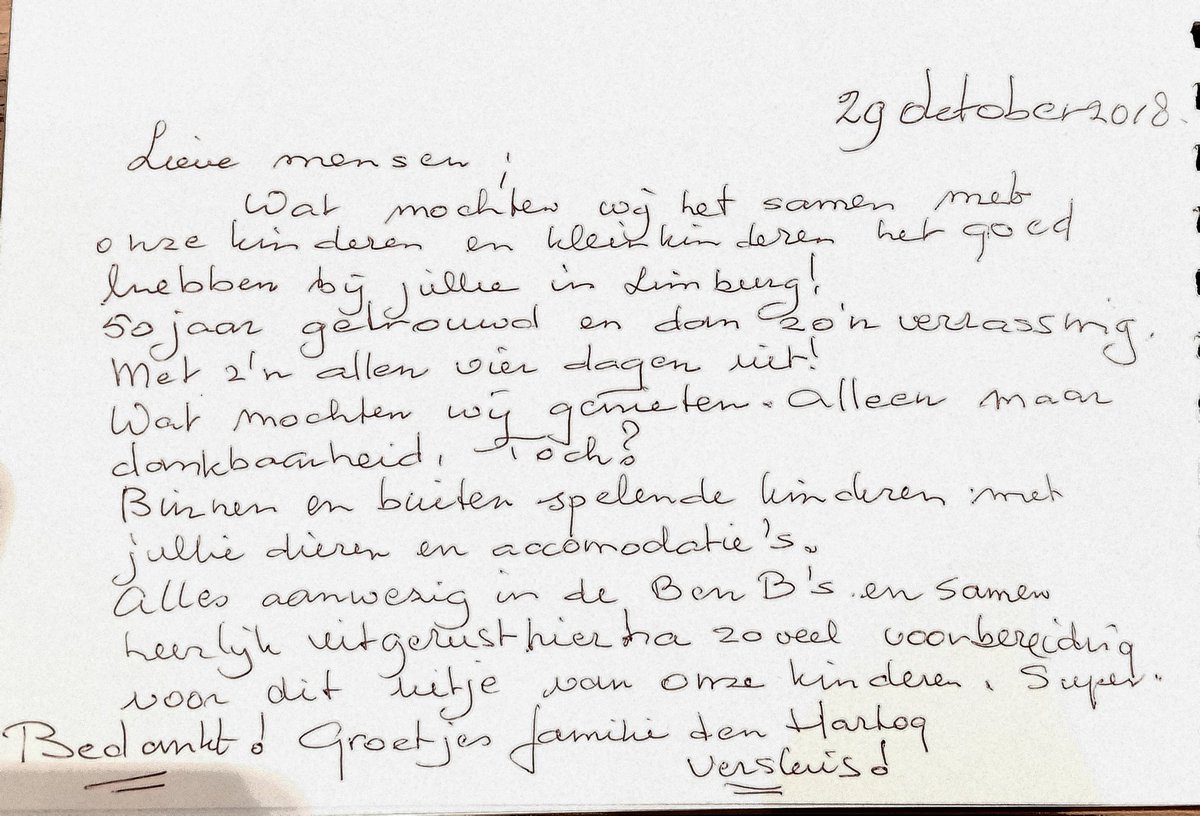 29 october 2018.
Lieve mensen!
Wat mochten wij het samen met
onze kinderen en kleinkinderen het goed
hebben bij jullie in Limburg!
50 jaar getrouwd en dan zo'n verrassing.
Met z'n allen vier dagen uit!
Wat mochten wij genieten. Alleen maar
dankbaarheid, Toch?
Binnen en buiten spelende kinderen met
jullie dieren en accomodatie's.
Alles aanwezig in de B en B's en samen
heerlijk uitgerust hier na zoveel voorbereiding
voor dit uitje van onze kinderen. Super.
Bedankt! Groetjes familie den Hartog
Versluis!